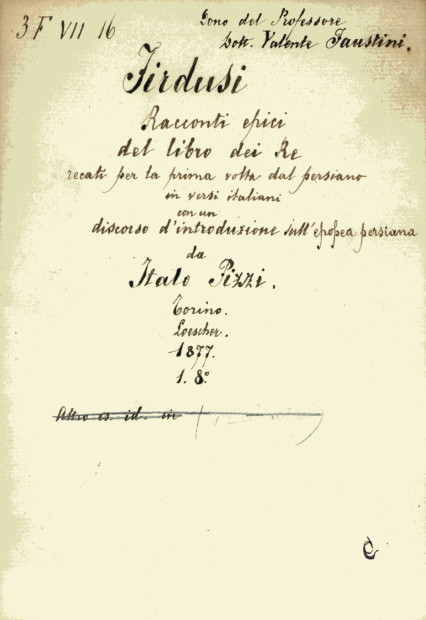 3 F VII 16
Dono del Professore
Dott. Valente Faustini.
Firdusi
Racconti epici
del libro dei Re
recati per la prima volta dal persiano
in versi italiani
con un
discorso d'introduzione sull'epopea persiana
da
Italo Pizzi.
Torino.
Loescher.
1877.
1. 8º
Altro es. id. in